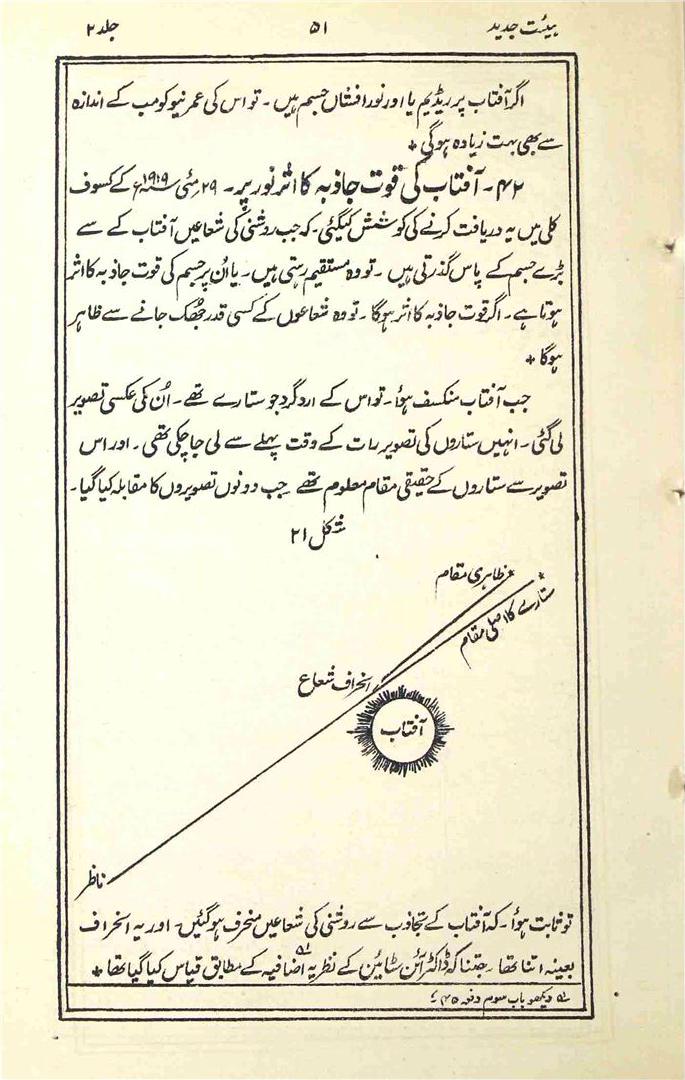 ہیئت جدید ۵۱ جلد ۲
اگر آفتاب پر ریڈیم یا اور نور افشاں جسم ہیں ۔ تو اس کی عمر نیوکومب کے اندازہ
سے بھی بہت زیادہ ہوگی *
۴۲ ۔ آفتاب کی قوت جاذبہ کا اثر نور پر ۔ ۲۹ مئی ۱۹۱۹ء کے کسوف
کلی میں یہ دریافت کرنے کی کوشش کیگئی ۔ کہ جب روشنی کی شعاعیں آفتاب کے سے
بڑے جسم کے پاس گذرتی ہیں ۔ تو وہ مستقیم رہتی ہیں ۔ یا اُن پر جسم کی قوت جاذبہ کا اثر
ہوتا ہے ۔ اگر قوت جاذبہ کا اثر ہوگا ۔ تو وہ شعاعوں کے کسی قدر جھُک جانے سے ظاہر
ہوگا *
جب آفتاب منکسف ہؤا ۔ تو اس کے اردگرد جو ستارے تھے ۔ اُن کی عکسی تصویر
لی گئی ۔ انہیں ستاروں کی تصویر رات کے وقت پہلے سے لی جاچکی تھی ۔ اور اس
تصویر سے ستاروں کے حقیقی مقام معلوم تھے جب دونوں تصویروں کا مقابلہ کیا گیا ۔
شکل ۲۱
ظاہری مقام
ستارے کا اصلی مقام
انحراف شعاع
آفتاب
ناظر
تو ثابت ہؤا ۔ کہ آفتاب کے تجاذب سے روشنی کی شعاعیں منحرف ہوگئیں ۔ اور یہ انحراف
بعینہ اتنا تھا ۔ جتنا کہ ڈاکٹر آئن سٹائین کے نظریہ اضافیہ کے مطابق قیاس کیا گیا تھا *
دیکھو باب سوم دفعہ ۴۵